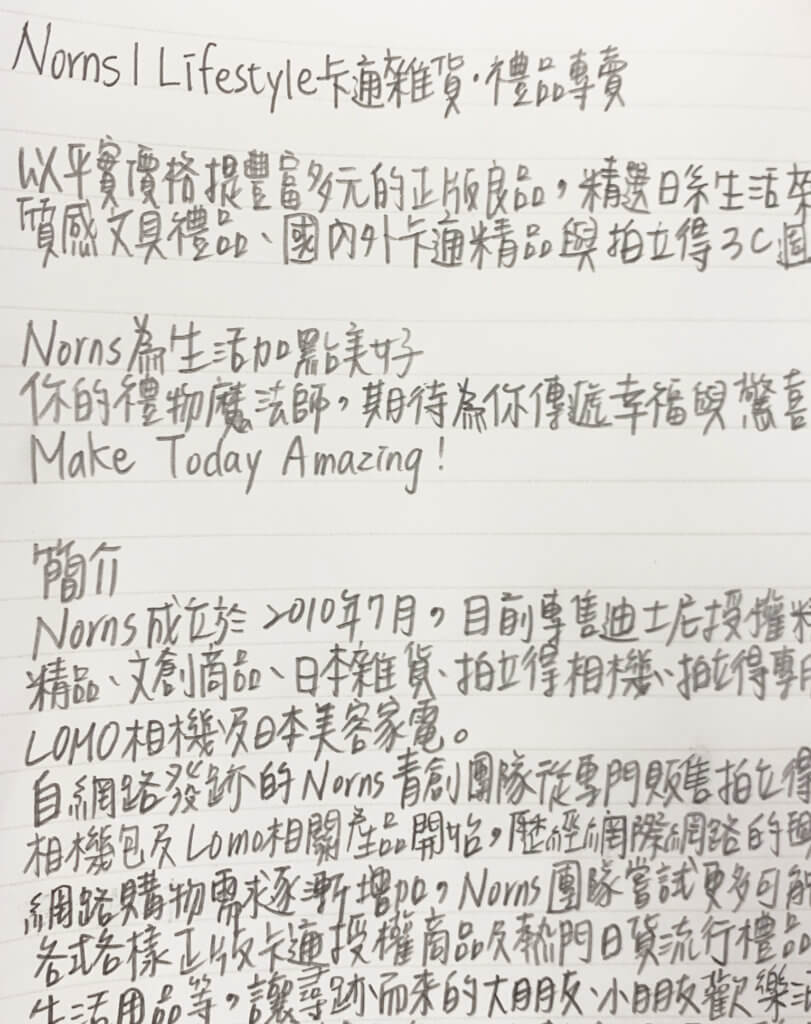 Norns | Lifestyle卡通雜貨·禮品專賣
以平實價格提豐富多元的正版良品,精選日系生活
質感文具禮品、國內外卡通精品與拍立得3C週
Norns為生活加點美好
你的禮物魔法師,期待為你傳遞幸福與驚喜
Make Today Amazing!
簡介
Norns成立於2010年7月,目前專售迪士尼授權
精品、文創商品、日本雜貨、拍立得相機、拍立得專用
LOMO相機及日本美容家電。
自網路發跡的Norns青創團隊從專門販售拍立得
相機包及Lomo相關產品開始,歷經網際網路的
網路購物需求逐漸增加,Norns團隊嘗試更多可能
各式各樣正版卡通授權商品及熱門日貨流行禮品
生活用品等,讓尋跡而來的大朋友、小朋友歡樂